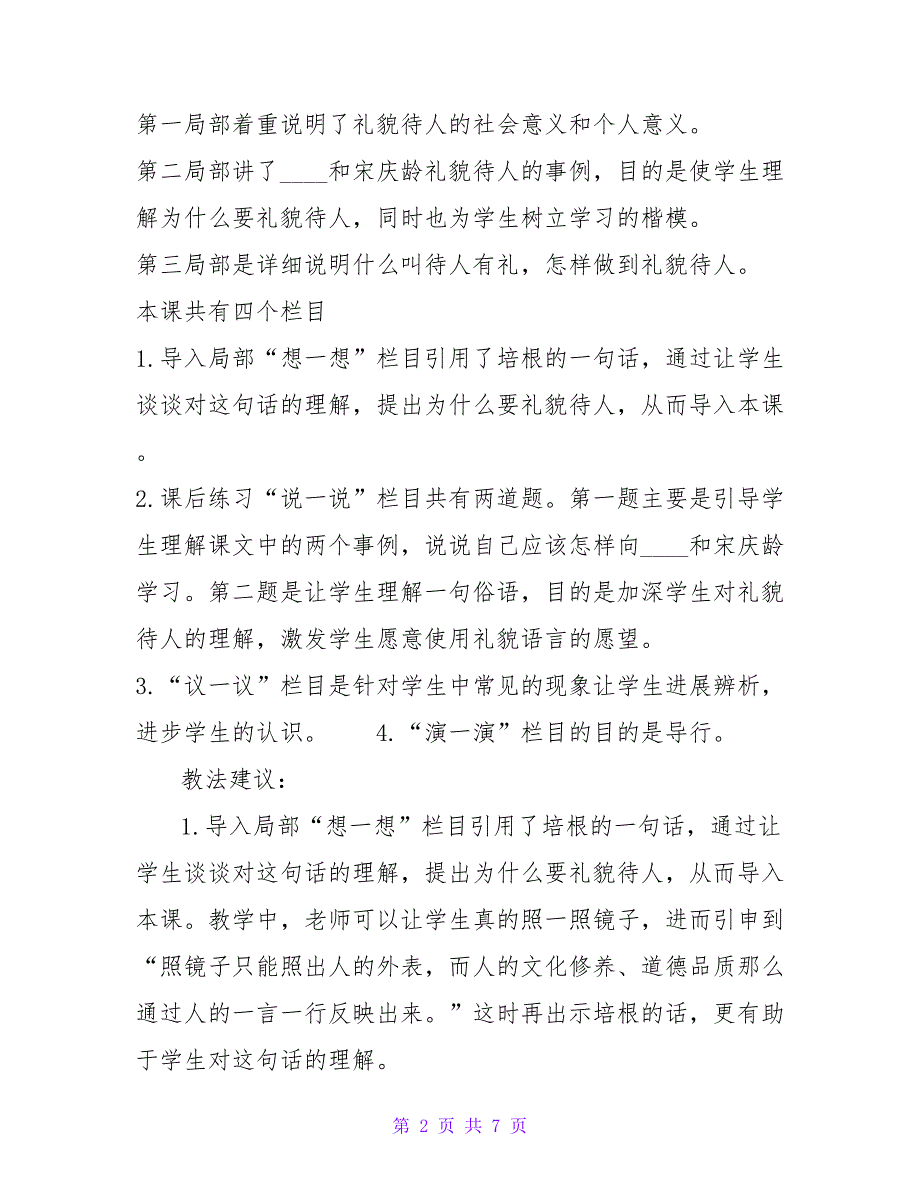 第一局部着重说明了礼貌待人的社会意义和个人意义。
第二局部讲了____和宋庆龄礼貌待人的事例，目的是使学生理
解为什么要礼貌待人，同时也为学生树立学习的楷模。
第三局部是详细说明什么叫待人有礼，怎样做到礼貌待人。
本课共有四个栏目
1.导入局部“想一想”栏目引用了培根的一句话，通过让学生
谈谈对这句话的理解，提出为什么要礼貌待人，从而导入本课
。
2.课后练习“说一说”栏目共有两道题。第一题主要是引导学
生理解课文中的两个事例，说说自己应该怎样向____和宋庆龄
学习。第二题是让学生理解一句俗语，目的是加深学生对礼貌
待人的理解，激发学生愿意使用礼貌语言的愿望。
3.“议一议”栏目是针对学生中常见的现象让学生进展辨析，
进步学生的认识。 4.“演一演”栏目的目的是导行。
教法建议：
1.导入局部“想一想”栏目引用了培根的一句话，通过让
学生谈谈对这句话的理解，提出为什么要礼貌待人，从而导入
本课。教学中，老师可以让学生真的照一照镜子，进而引申到
“照镜子只能照出人的外表，而人的文化修养、道德品质那么
通过人的一言一行反映出来。”这时再出示培根的话，更有助
于学生对这句话的理解。
第 2 页 共 7 页